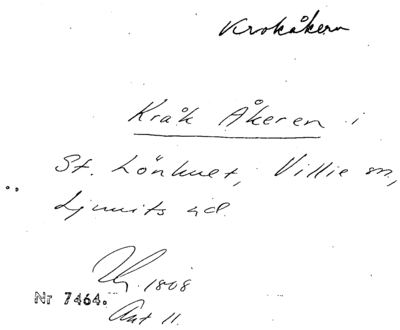 Krokåkern
Kråk Åkeren i
St. Lönhuet, Villie sn,
Ljunits hd.
1808
Nr 7464.
Akt 11.